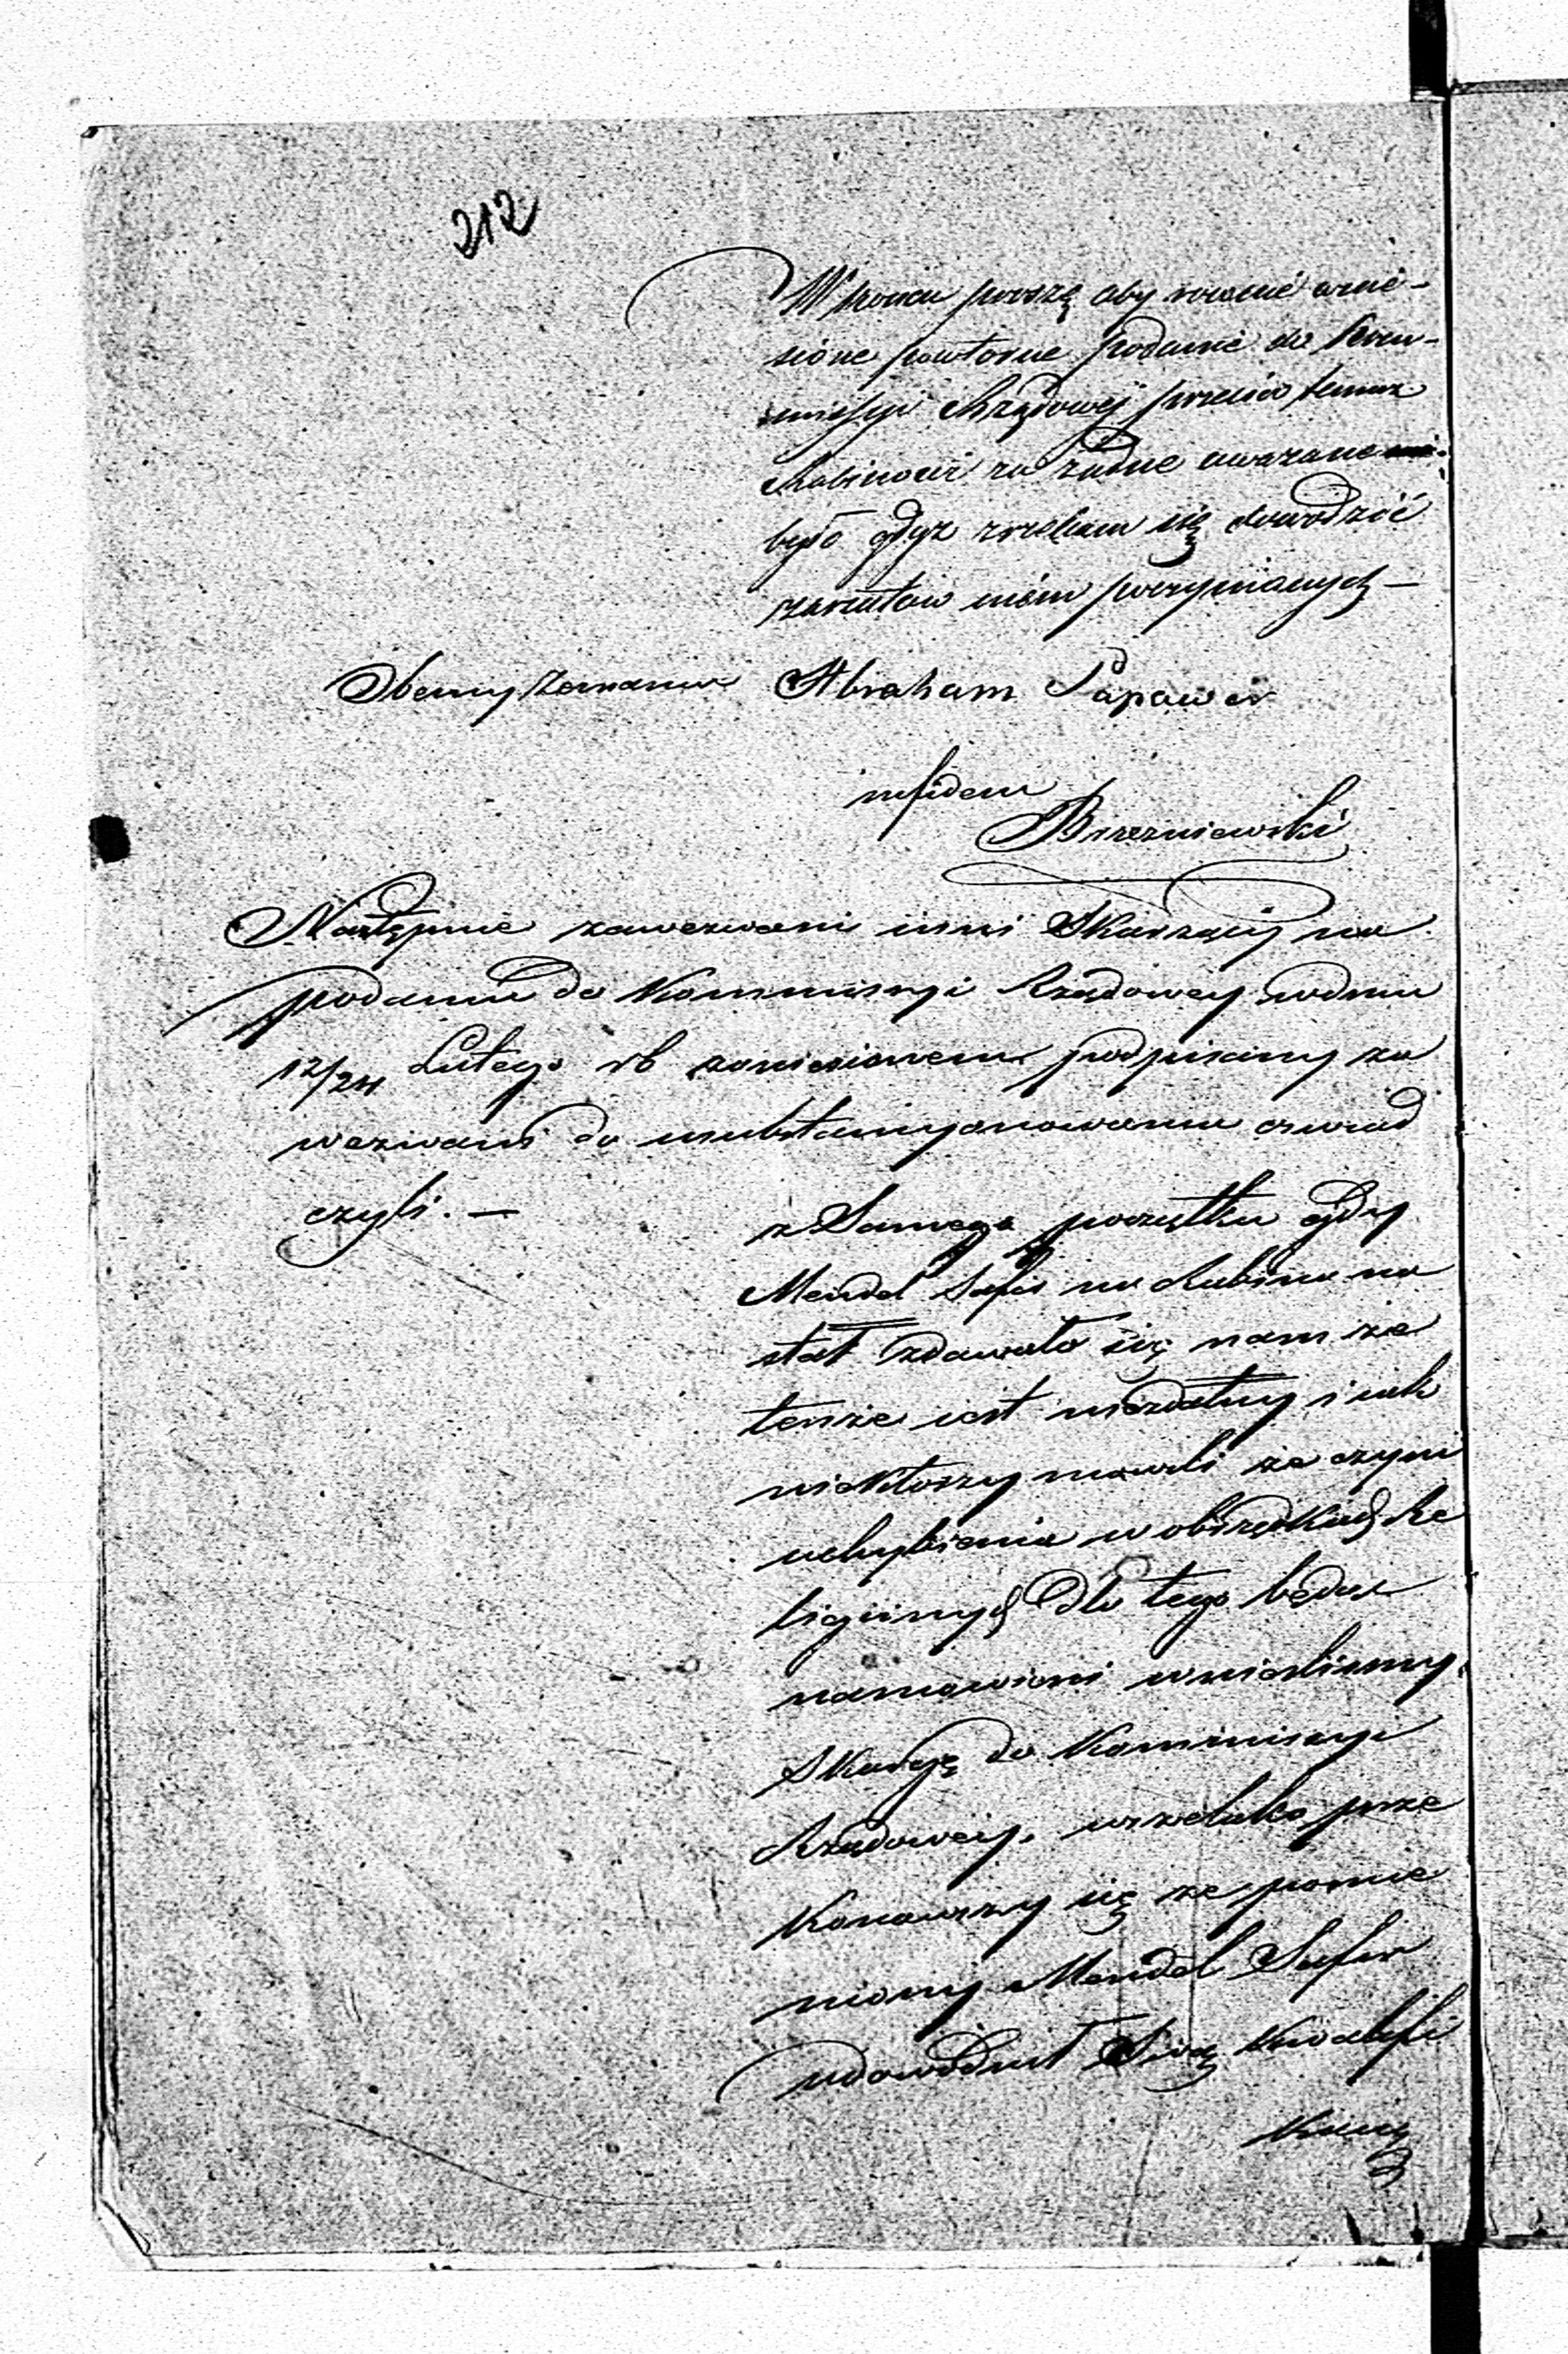 212
W koncu proszę aby rownie wnie-
sione powtorne podanie do Kom-
missyi Rządowej przeciw temuz
Rabinowi za żadne uwazane
było gdyz zrzekam się dowodzić
zarzutow niem poczynionych —
Obecny zeznaniu Abraham Papawer
in fidem
Brzezniewski
Następnie zawezwani inni Skarzący na
podaniu do Kommissyi Rządowey wdniu
12/24 Lutego rb zaniesionem podpisany za
wezwani do usubstancyonowania oswiad
czyli. —
z Samego początku gdy
Mendel Safir na Rabina na
stał zdawało się nam że
tenże iest niezdatny i iak
niektorzy mowili że czyni
uchybienia w obrządkach Re
ligiinych Dla tego będąc
namowieni wnieslismy
Skargę do Kommissyi
Rządowey, wszelako prze
Konawszy się ze pomie
niony Mendel Safir
udowodnił Swą Kwalifi
kacyą